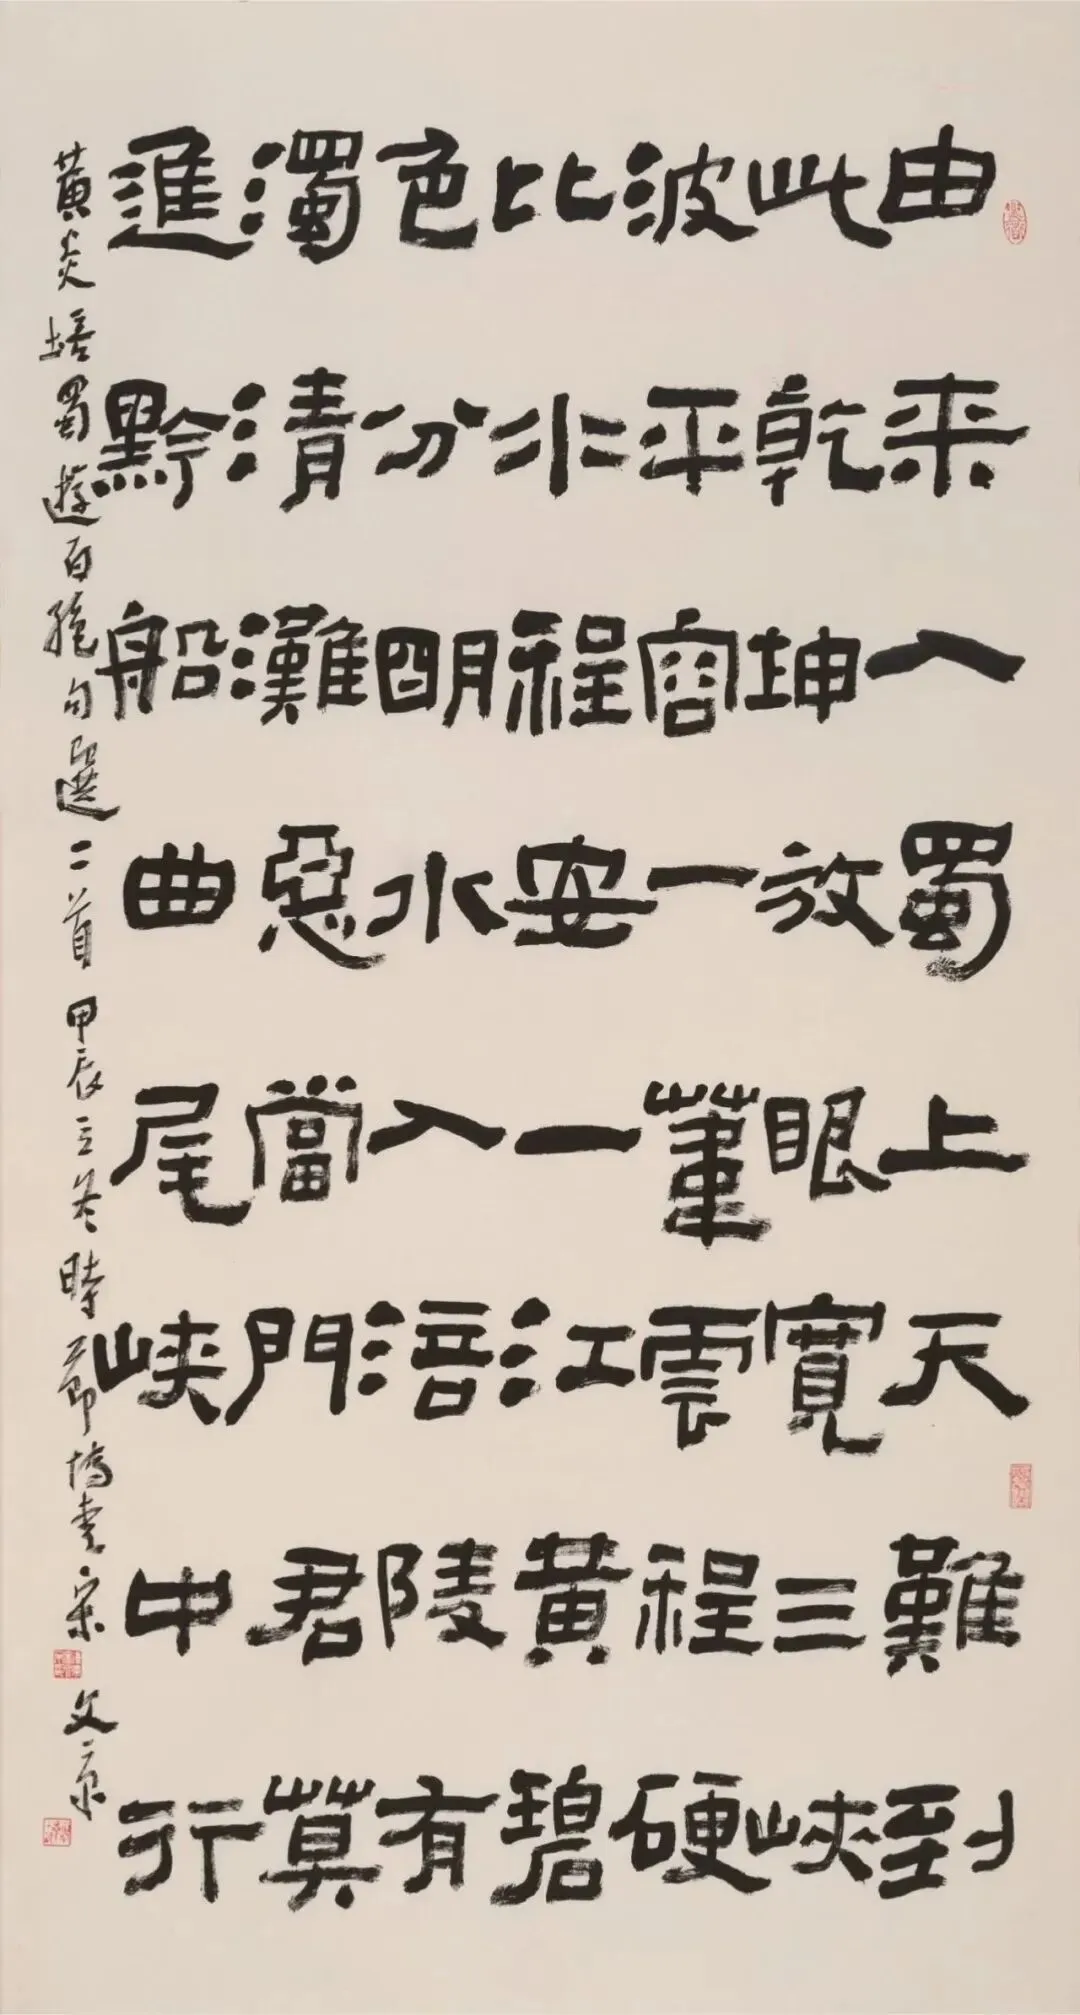 由来入蜀上天難到
此乾坤放眼寬三峽
波平容一葦雲程硬
比水程安一江黃碧
色分明水入涪陵有
濁清灘惡當門君莫
進黔船曲尾峽中行
黃炎培蜀遊百絕句選二首甲辰立冬時節宋文京